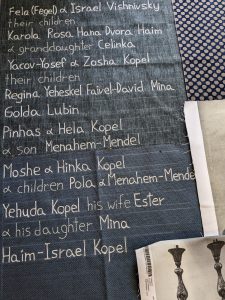 Fela (Fegel) & Israel Vishnivsky
their children
Karola Rosa Hana Dvora Haim
& granddaughter Celinka
Yacov-Yosef & Zosha Kopel
their children
Regina Yeheskel Faivel-David Mina
Golda Lubin
Pinhas & Hela Kopel
& son Menahem-Mendel
Moshe & Hinka Kopel
& children Pola & Menahem-Mendel
Yehuda Kopel his wife Ester
& his daughter Mina
Haim-Israel Kopel